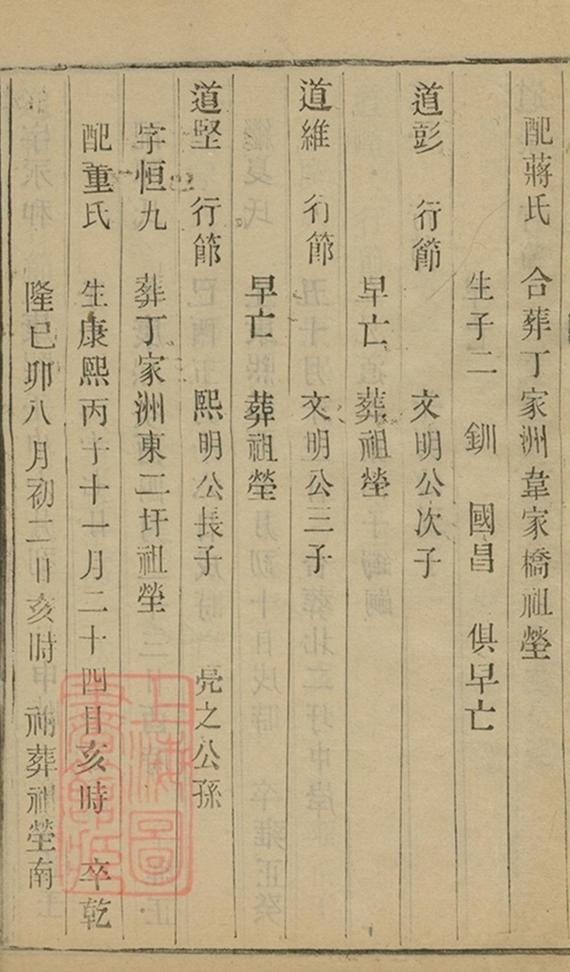 配蔣氏 合葬丁家洲韋家橋祖塋
生子二 釧 國昌 俱早亡
道彭 行節 文明公次子
早亡 葬祖塋
道維 行節 文明公三子
早亡 葬祖塋
道堅 行節 熙明公長子 亮之公孫
字恒九 葬丁家洲東二圩祖塋
配董氏 生康熙丙子十一月二十四日亥時 卒乾
隆己卯八月初二日亥時 祔葬祖塋南